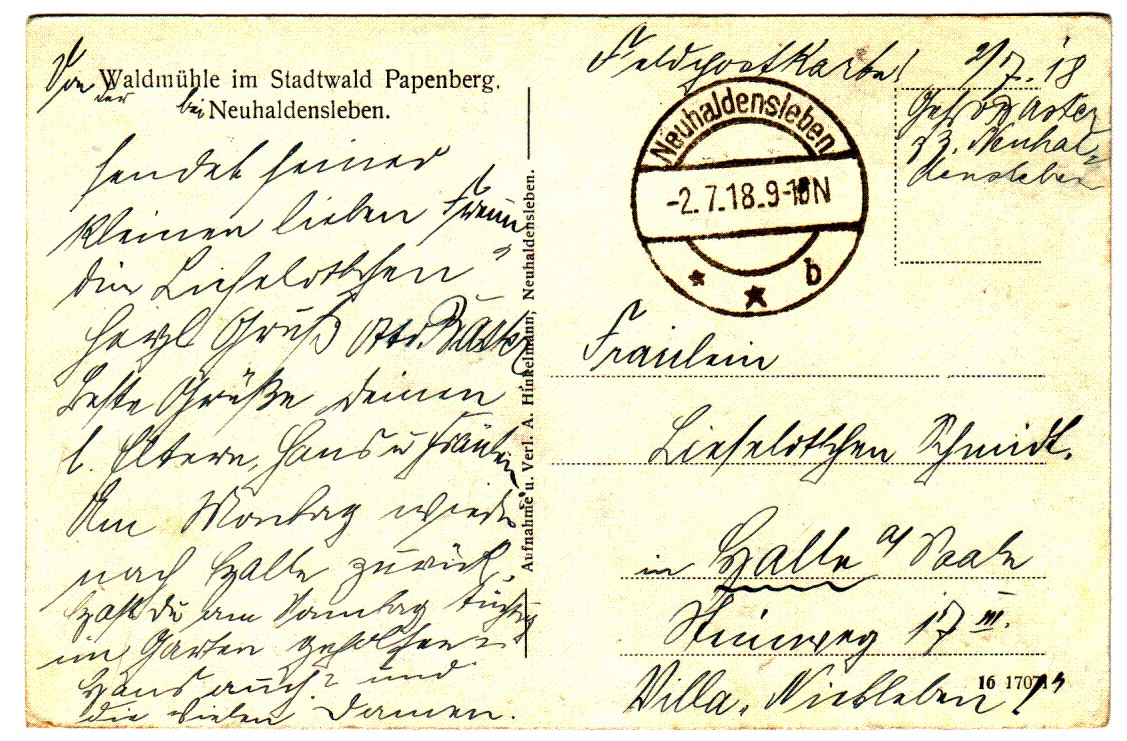 Von Waldmühle im Stadtwald Papenberg.
der bei Neuhaldensleben.
sendet seiner
kleinen lieben Freun-
din Lieselottchen
herzl Gruß Otto
Beste Grüße Deinen
l. Eltern, Hans u Fräulein
Am Montag wieder
nach Halle zurück.
Hast Du am Sonntag tüchtig
im Garten geholfen
Hans auch? und
die vielen Damen.
Aufnahme u. Verl. A. Hinkelmann, Neuhaldensleben.
Feldpostkarte! 2/7.18
Gefr
z Z. Neuhal-
densleben
Neuhaldensleben
-2.7.18.9-10N
* * b
Fräulein
Lieselottchen Schmidt.
in Halle a/ Saale
Steinweg 17 III.
Villa
16 1707